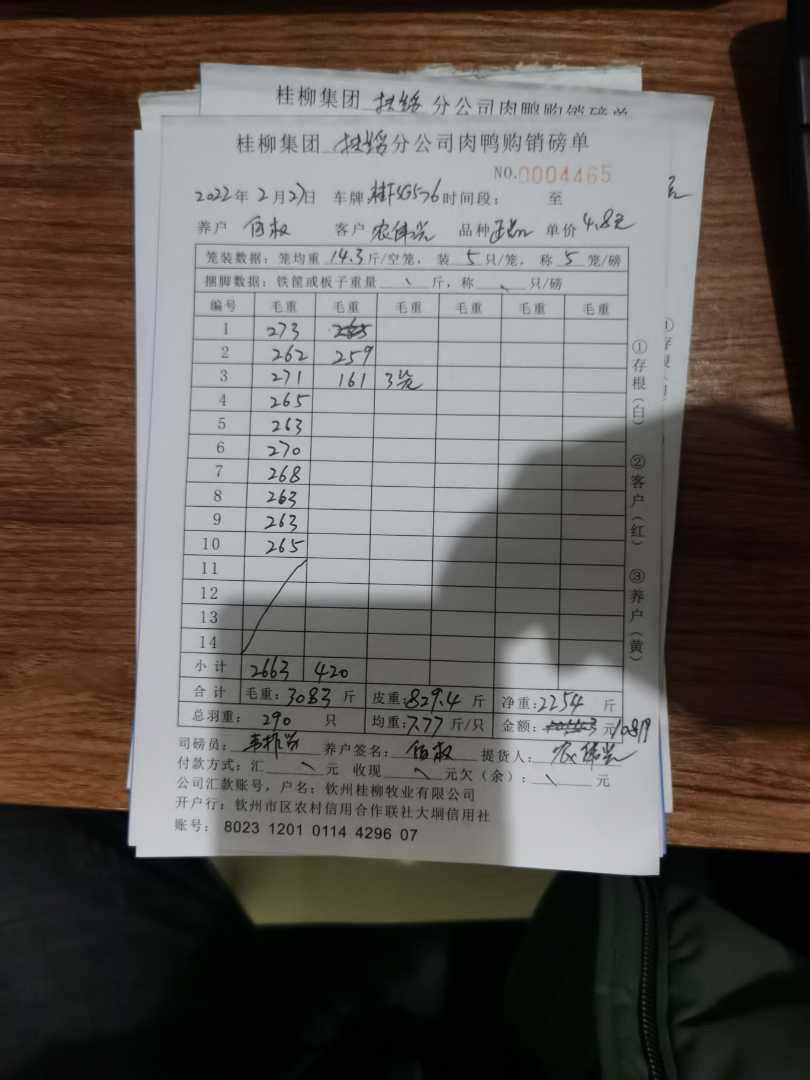 桂柳集团 扶绥 分公司肉鸭购销磅单
桂柳集团 扶绥 分公司肉鸭购销磅单
NO.0004465
2022年2月27日 车牌 时间段: 至
养户 伍权 客户 农伟党 品种 单价 4.8元
笼装数据: 笼均重 14.3 斤/空笼, 装 5 只/笼, 称 5 笼/磅
捆脚数据: 铁筐或板子重量 、 斤, 称 、 只/磅
编号 毛重 毛重 毛重 毛重 毛重 毛重
1 273 265
2 262 259
3 271 161 3笼
4 265
5 263
6 270
7 268
8 263
9 263
10 265
11
12
13
14
小计 2663 420
合计 毛重: 3083 斤 皮重: 829.4 斤 净重: 2254 斤
总羽重: 290 只 均重: 7.77 斤/只 金额: 元 10819
司磅员: 养户签名: 伍权 提货人: 农伟党
付款方式: 汇 、 元 收现 、 元欠(余): 、 元
公司汇款账号, 户名: 钦州桂柳牧业有限公司
开户行: 钦州市区农村信用合作联社大垌信用社
账号: 8023 1201 0114 4296 07
①存根(白) ②客户(红) ③养户(黄)